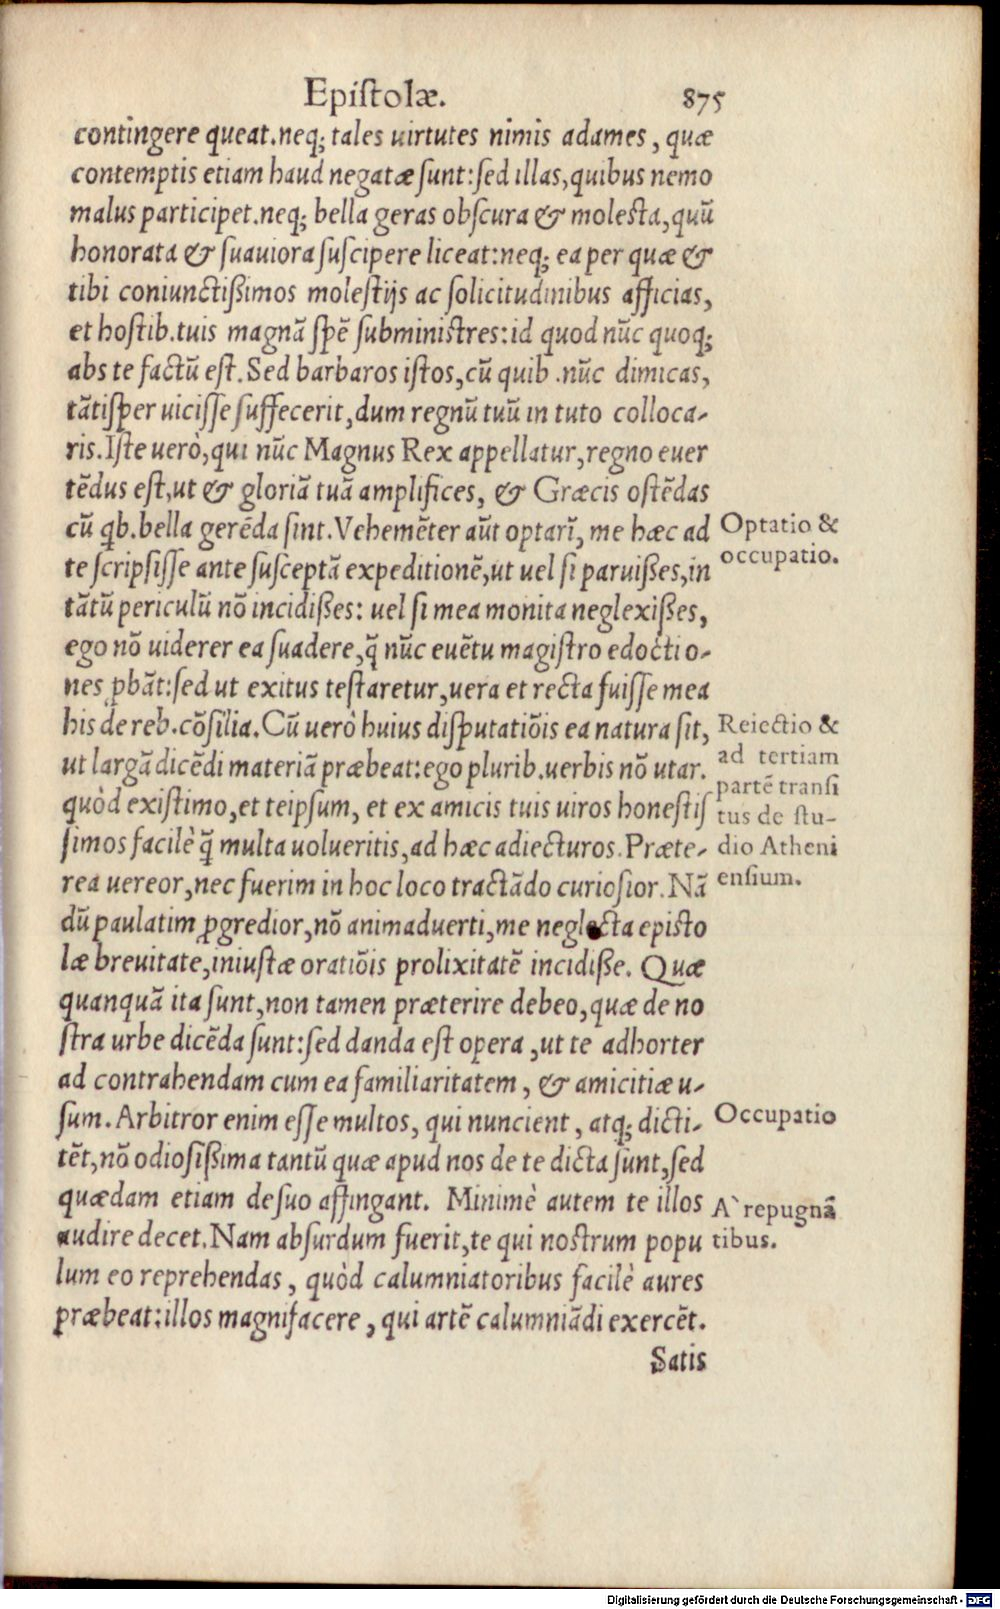 Epiſtolæ. 875
contingere queat.neq; tales uirtutes nimis adames, quæ
contemptis etiam haud negatæ ſunt:ſed illas,quibus nemo
malus participet.neq; bella geras obſcura & moleſta,quũ
honorata & ſuauiora ſuſcipere liceat:neq; ea per quæ &
tibi coniunctißimos moleſtijs ac ſolicitudinibus afficias,
et hoſtib.tuis magnã ſpẽ ſubminiſtres:id quod nũc quoq;
abs te factũ eſt.Sed barbaros iſtos,cũ quib.nũc dimicas,
tãtiſper uiciſſe ſuffecerit,dum regnũ tuũ in tuto colloca-
ris.Iſte uerò,qui nũc Magnus Rex appellatur,regno euer
tẽdus eſt,ut & gloriã tuã amplifices, & Græcis oſtẽdas
cũ qb.bella gerẽda ſint.Vehemẽter aũt optarĩ, me hæc ad
te ſcripſiſſe ante ſuſceptã expeditionẽ,ut uel ſi paruißes,in
tãtũ periculũ nõ incidißes: uel ſi mea monita neglexißes,
ego nõ uiderer ea ſuadere,q̃ nũc euẽtu magiſtro edoctio-
nes ꝓbãt:ſed ut exitus teſtaretur,uera et recta fuiſſe mea
his de reb.cõſilia.Cũ uerò huius diſputatiõis ea natura ſit,
ut largã dicẽdi materiã præbeat:ego plurib.uerbis nõ utar.
quòd exiſtimo,et teipſum, et ex amicis tuis uiros honeſtiſ
ſimos facilè q̃ multa uolueritis,ad hæc adiecturos.Præte-
rea uereor,nec fuerim in hoc loco tractãdo curioſior.Nã
dũ paulatim ꝓgredior,nõ animaduerti,me neglecta epiſto
læ breuitate,iniuſtæ oratiõis prolixitatẽ incidiße. Quæ
quanquã ita ſunt,non tamen præterire debeo,quæ de no
ſtra urbe dicẽda ſunt:ſed danda eſt opera,ut te adhorter
ad contrahendam cum ea familiaritatem, & amicitiæ u-
ſum.Arbitror enim eſſe multos, qui nuncient, atq; dicti-
tẽt,nõ odioſißima tantũ quæ apud nos de te dicta ſunt,ſed
quædam etiam de ſuo affingant. Minimè autem te illos
audire decet.Nam abſurdum fuerit,te qui noſtrum popu
lum eo reprehendas, quòd calumniatoribus facilè aures
præbeat:illos magnifacere, qui artẽ calumniãdi exercẽt.
Satis
Optatio &
occupatio.
Reiectio &
ad tertiam
partẽ tranſi
tus de ſtu-
dio Atheni
enſium.
Occupatio
A` repugnã
tibus.
Digitalisierung gefördert durch die Deutsche Forschungsgemeinschaft - DFG